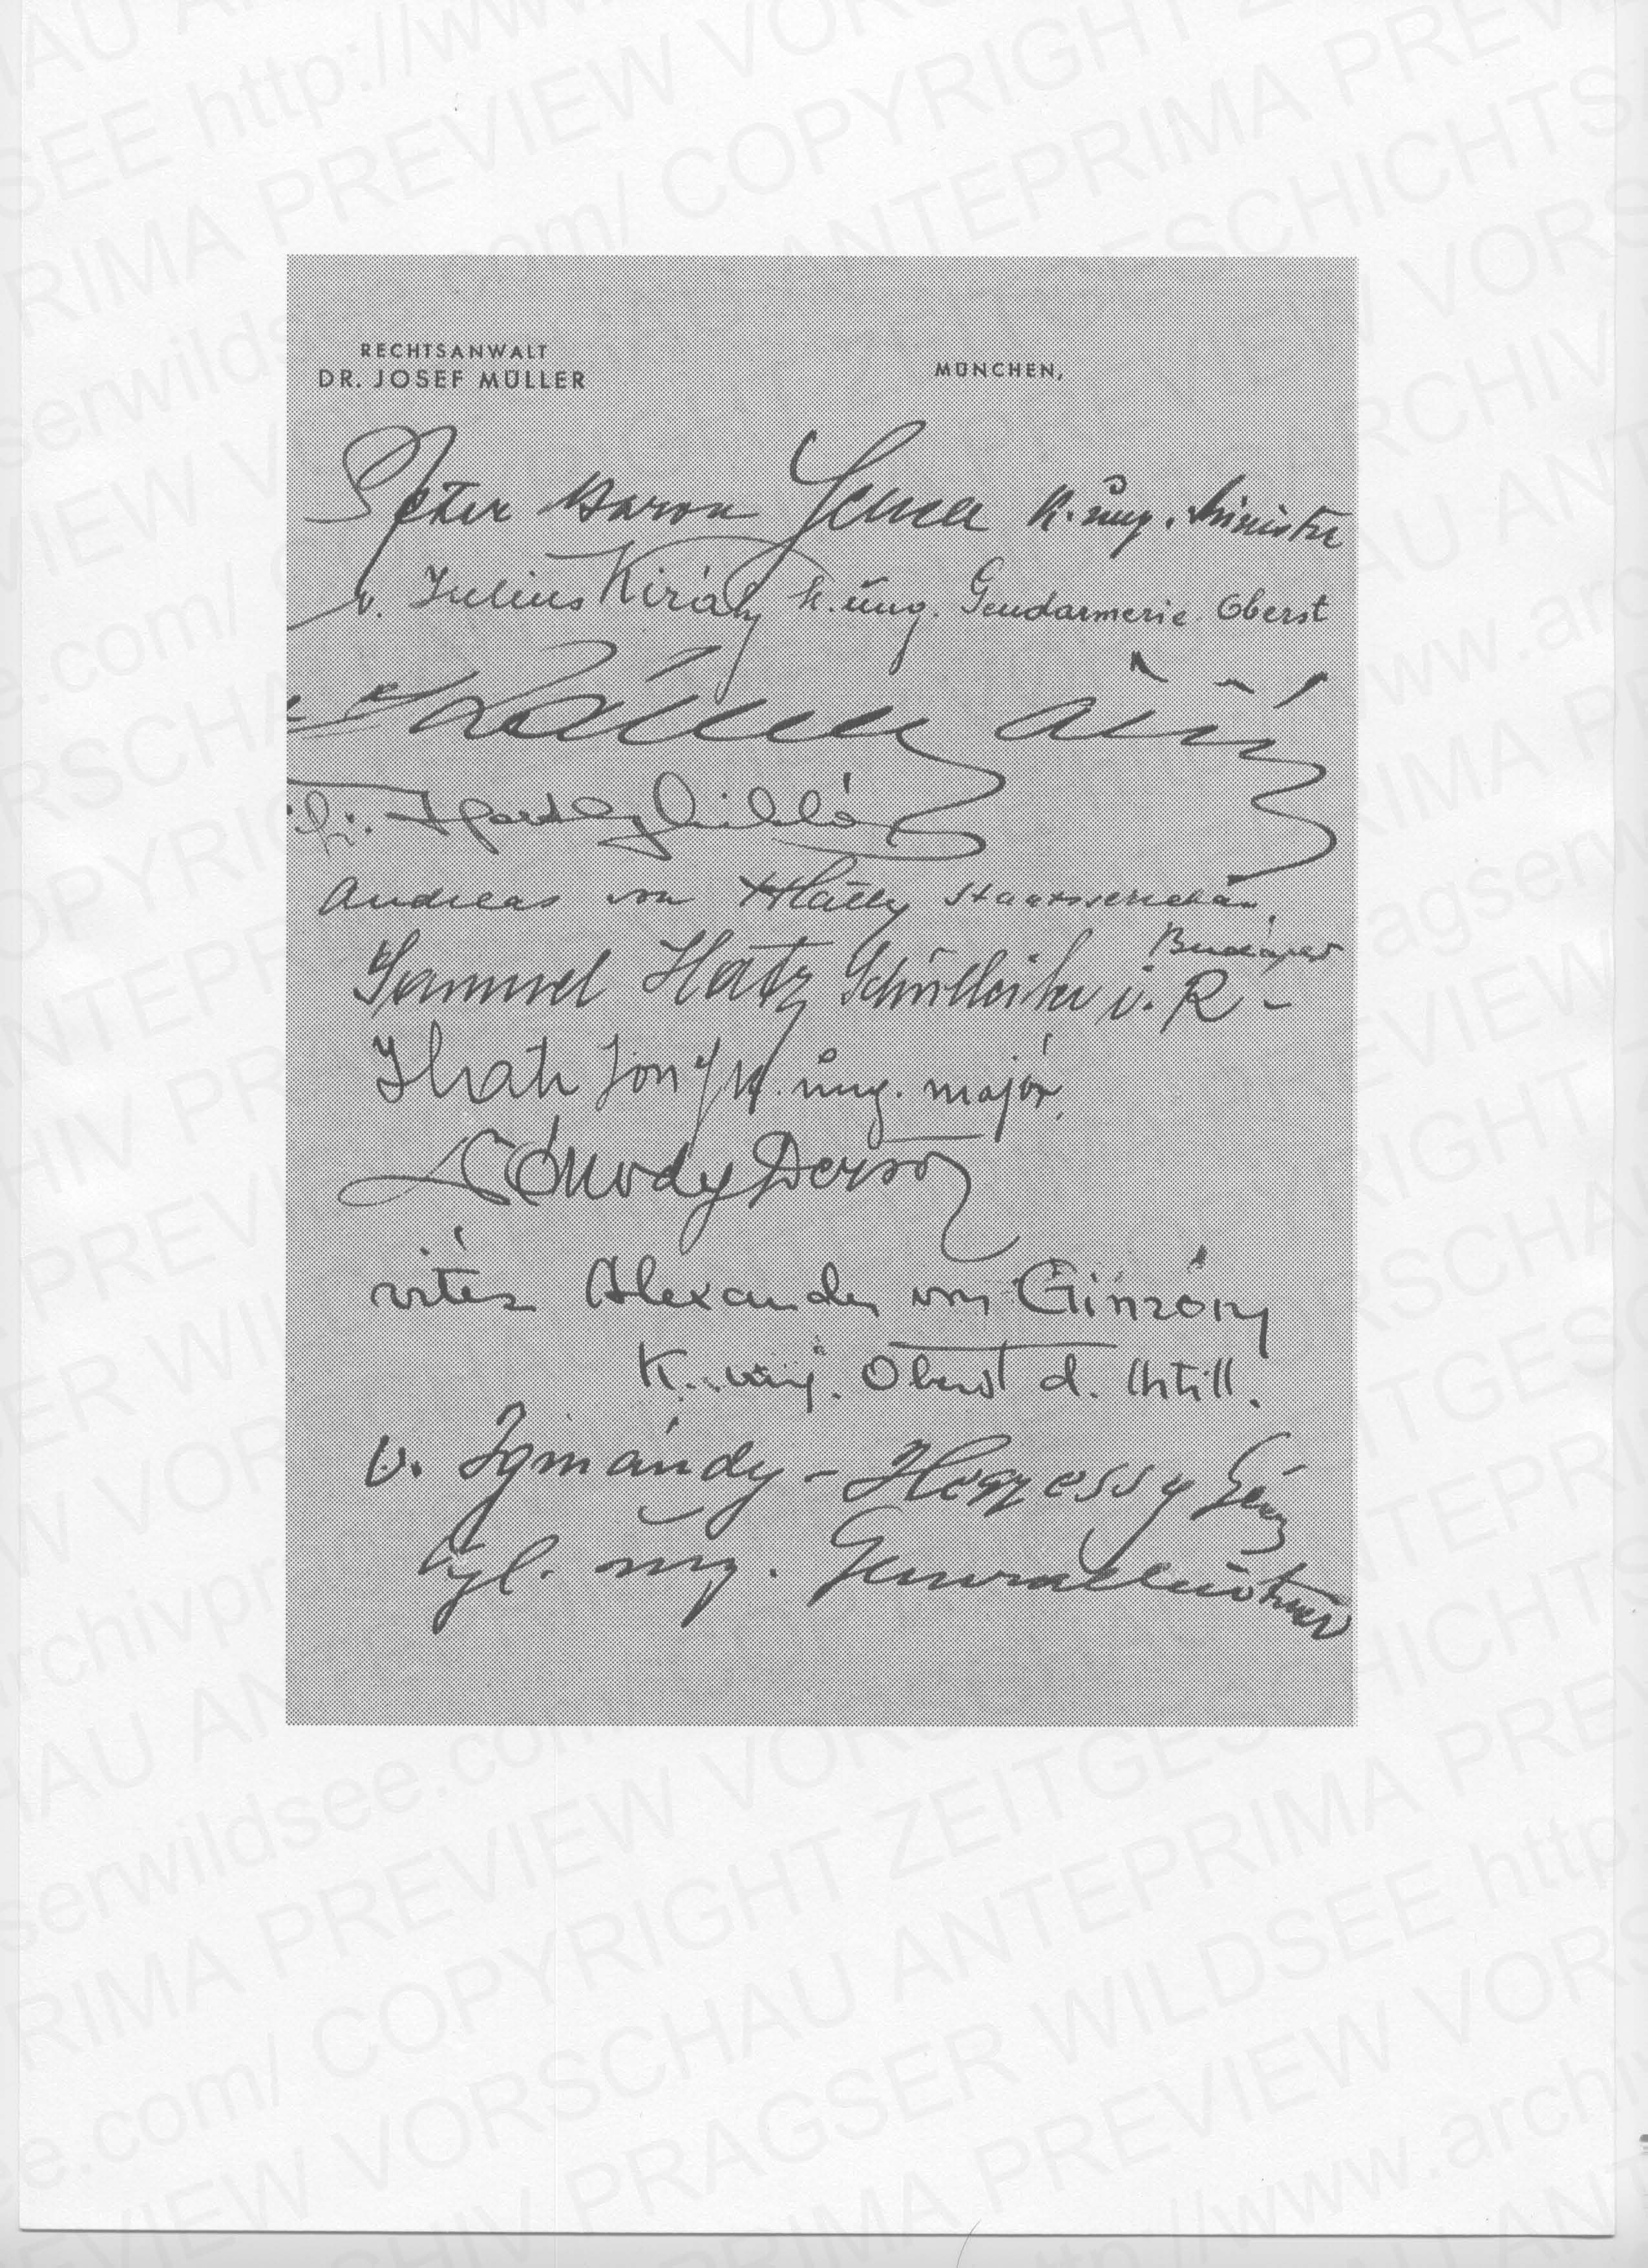 RECHTSANWALT
DR. JOSEF MÜLLER
MÜNCHEN,
Peter Baron k. ung. Minister
v. Julius Király k. ung. Gendarmerie Oberst
Kállay
ifj. Horthy Miklós
Andreas von Hlatky Staatssekretär
Budapest
Samuel Hatz Schriftleiter i. R -
Hatz k. ung. major
Ónody Dezső
vitéz Alexander von Ginzery
K. ung. Oberst d. Artill.
v. Igmándy - Hegyessy Géza
Kgl. ung. Generalleutnant
COPYRIGHT ZEITGESCHICHTSARCHIV PRAGSER WILDSEE http://www.archivpragserwildsee.com/
ANTEPRIMA PREVIEW VORSCHAU